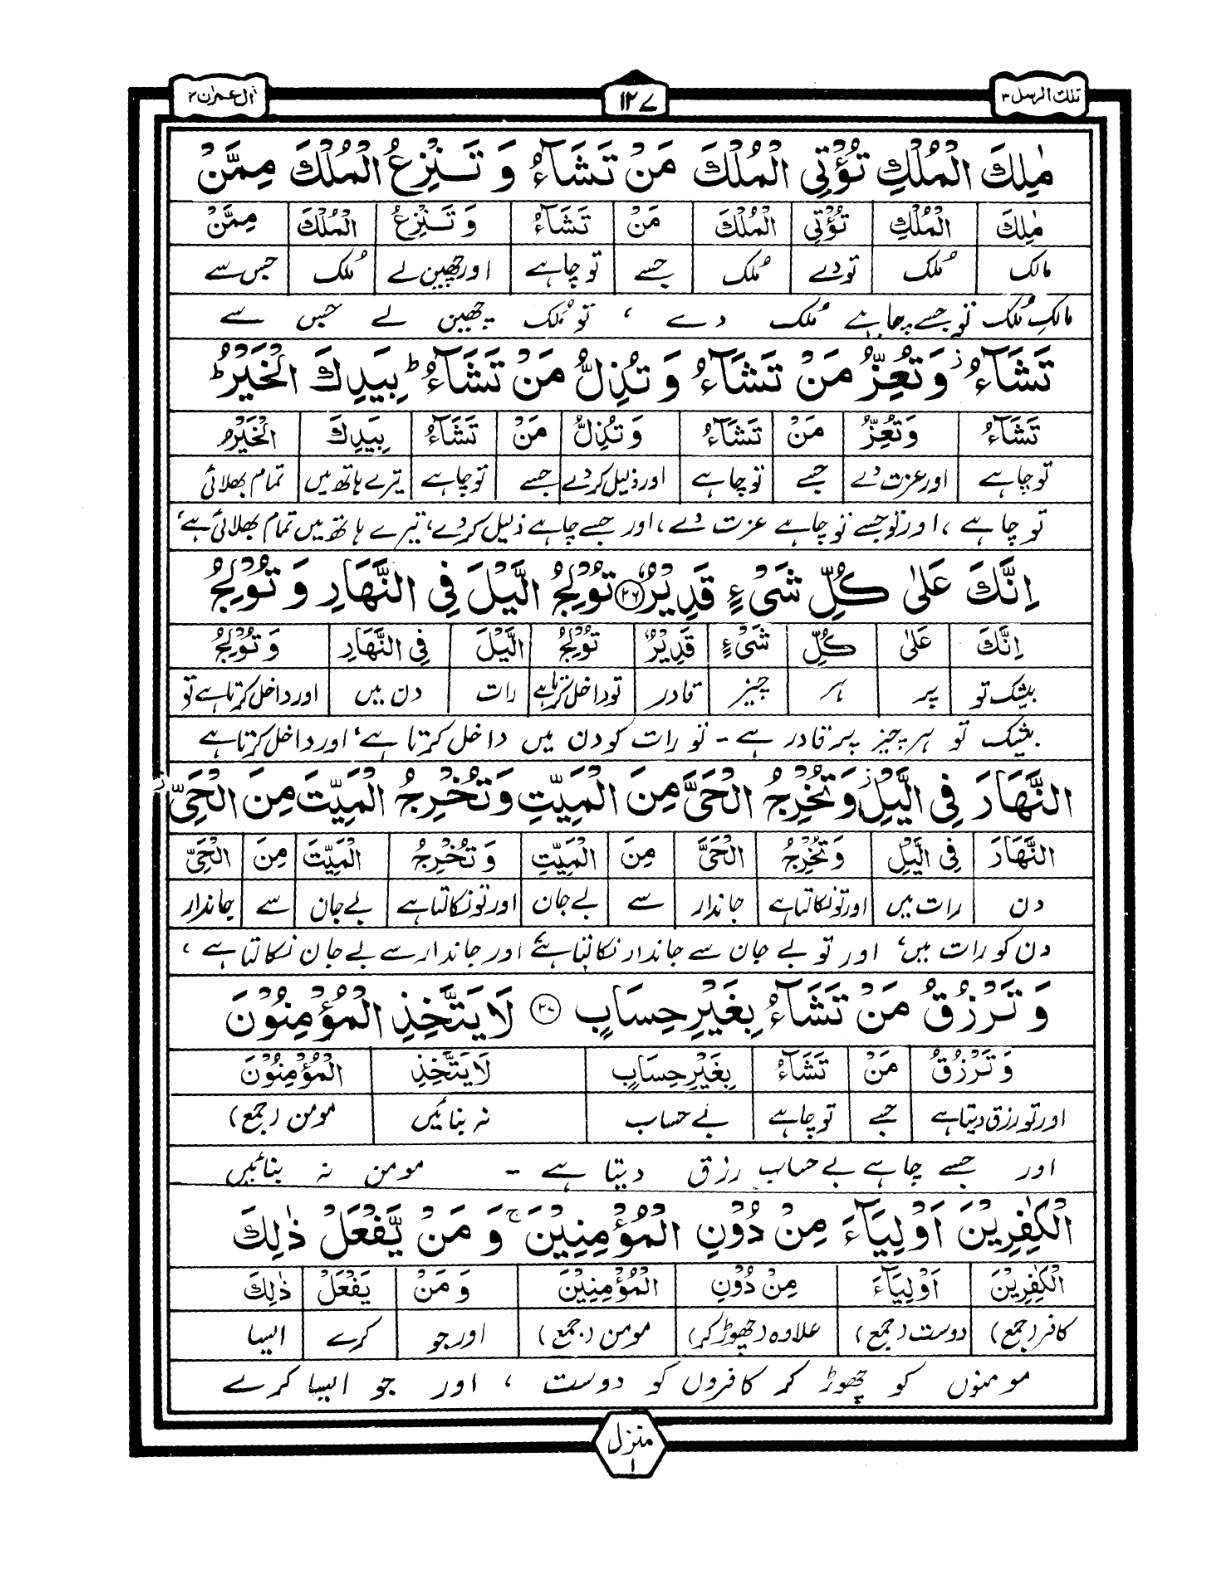 تلك الرسل ۳
۱۲۷
اٰل عمرٰن ۳
مٰلِكَ الْمُلْكِ تُؤْتِی الْمُلْكَ مَنْ تَشَآءُ وَ تَنْزِعُ الْمُلْكَ مِمَّنْ
مٰلِكَ الْمُلْكِ تُؤْتِی الْمُلْكَ مَنْ تَشَآءُ وَ تَنْزِعُ الْمُلْكَ مِمَّنْ
مالک مُلک تو دے مُلک جسے تو چاہے اور چھین لے مُلک جس سے
مالکِ مُلک تو جسے چاہے مُلک دے ، تو مُلک چھین لے جس سے
تَشَآءُ ز وَ تُعِزُّ مَنْ تَشَآءُ وَ تُذِلُّ مَنْ تَشَآءُ ؕ بِیَدِكَ الْخَیْرُ ؕ
تَشَآءُ وَ تُعِزُّ مَنْ تَشَآءُ وَ تُذِلُّ مَنْ تَشَآءُ بِیَدِكَ الْخَیْرُ
تو چاہے اور عزت دے جسے تو چاہے اور ذلیل کر دے جسے تو چاہے تیرے ہاتھ میں تمام بھلائی
تو چاہے ، اور تو جسے تو چاہے عزت دے ، اور جسے چاہے ذلیل کر دے، تیرے ہاتھ میں تمام بھلائی ہے،
اِنَّكَ عَلٰی كُلِّ شَیْءٍ قَدِیْرٌ ۲۶ تُوْلِجُ الَّیْلَ فِی النَّهَارِ وَ تُوْلِجُ
اِنَّكَ عَلٰی كُلِّ شَیْءٍ قَدِیْرٌ تُوْلِجُ الَّیْلَ فِی النَّهَارِ وَ تُوْلِجُ
بیشک تو پر ہر چیز قادر تو داخل کرتا ہے رات دن میں اور داخل کرتا ہے تو
بیشک تو ہر چیز پر قادر ہے - تو رات کو دن میں داخل کرتا ہے ، اور داخل کرتا ہے
النَّهَارَ فِی الَّیْلِ ز وَ تُخْرِجُ الْحَیَّ مِنَ الْمَیِّتِ وَ تُخْرِجُ الْمَیِّتَ مِنَ الْحَیِّ ز
النَّهَارَ فِی الَّیْلِ وَ تُخْرِجُ الْحَیَّ مِنَ الْمَیِّتِ وَ تُخْرِجُ الْمَیِّتَ مِنَ الْحَیِّ
دن رات میں اور تو نکالتا ہے جاندار سے بے جان اور تو نکالتا ہے بے جان سے جاندار
دن کو رات میں، اور تو بے جان سے جاندار نکالتا ہے اور جاندار سے بے جان نکالتا ہے ،
وَ تَرْزُقُ مَنْ تَشَآءُ بِغَیْرِ حِسَابٍ ۲۷ لَا یَتَّخِذِ الْمُؤْمِنُوْنَ
وَ تَرْزُقُ مَنْ تَشَآءُ بِغَیْرِ حِسَابٍ لَا یَتَّخِذِ الْمُؤْمِنُوْنَ
اور تو رزق دیتا ہے جسے تو چاہے بے حساب نہ بنائیں مومن (جمع)
اور جسے چاہے بے حساب رزق دیتا ہے - مومن نہ بنائیں
الْكٰفِرِیْنَ اَوْلِیَآءَ مِنْ دُوْنِ الْمُؤْمِنِیْنَ ۚ وَ مَنْ یَّفْعَلْ ذٰلِكَ
الْكٰفِرِیْنَ اَوْلِیَآءَ مِنْ دُوْنِ الْمُؤْمِنِیْنَ وَ مَنْ یَفْعَلْ ذٰلِكَ
کافر (جمع) دوست (جمع) علاوہ (چھوڑ کر) مومن (جمع) اور جو کرے ایسا
مومنوں کو چھوڑ کر کافروں کو دوست ، اور جو ایسا کرے
منزل
۱